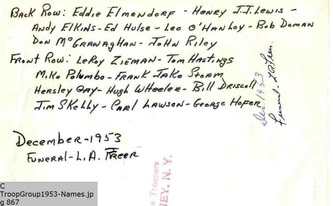 Back Row: Eddie Elmendorf - Henry J.J. Lewis -
Andy Elkins - Ed Hulse - Leo O'Hanloy - Bob Doman
Don McGranaghan - John Riley
Front Row: LeRoy Zieman - Tom Hastings
Mike Palumbo - Frank Jake Storm
Hensley Gay - Hugh Wheeler - Bill Driscoll
Jim Skelly - Carl Lawson - George Hofer
Dec 1953
December - 1953
Funeral - L.A.
Troopers
NEY, N.Y.
C
TroopGroup1953-Names.jp
g 867